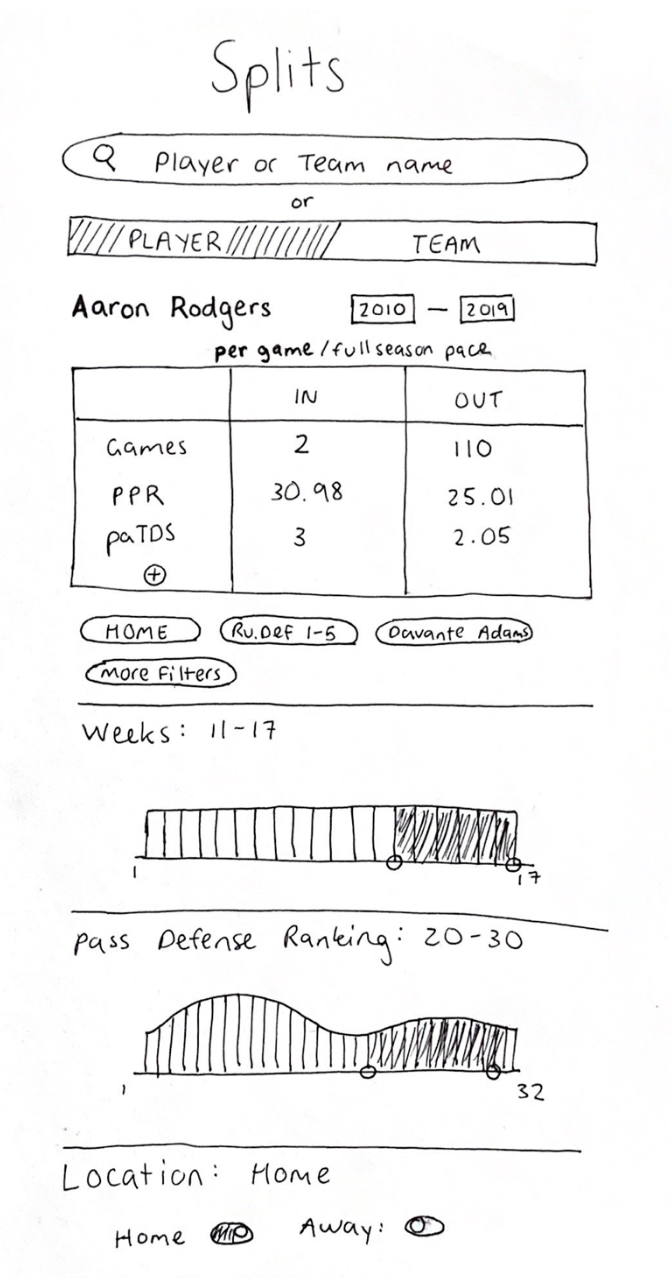 Splits
Player or Team name
or
PLAYER TEAM
Aaron Rodgers 2010 — 2019
per game/full season pace
IN OUT
Games 2 110
PPR 30.98 25.01
paTDS 3 2.05
HOME Ru.Def 1-5 Davante Adams
More Filters
Weeks: 11-17
1 17
Pass Defense Ranking: 20-30
1 32
Location: Home
Home Away: